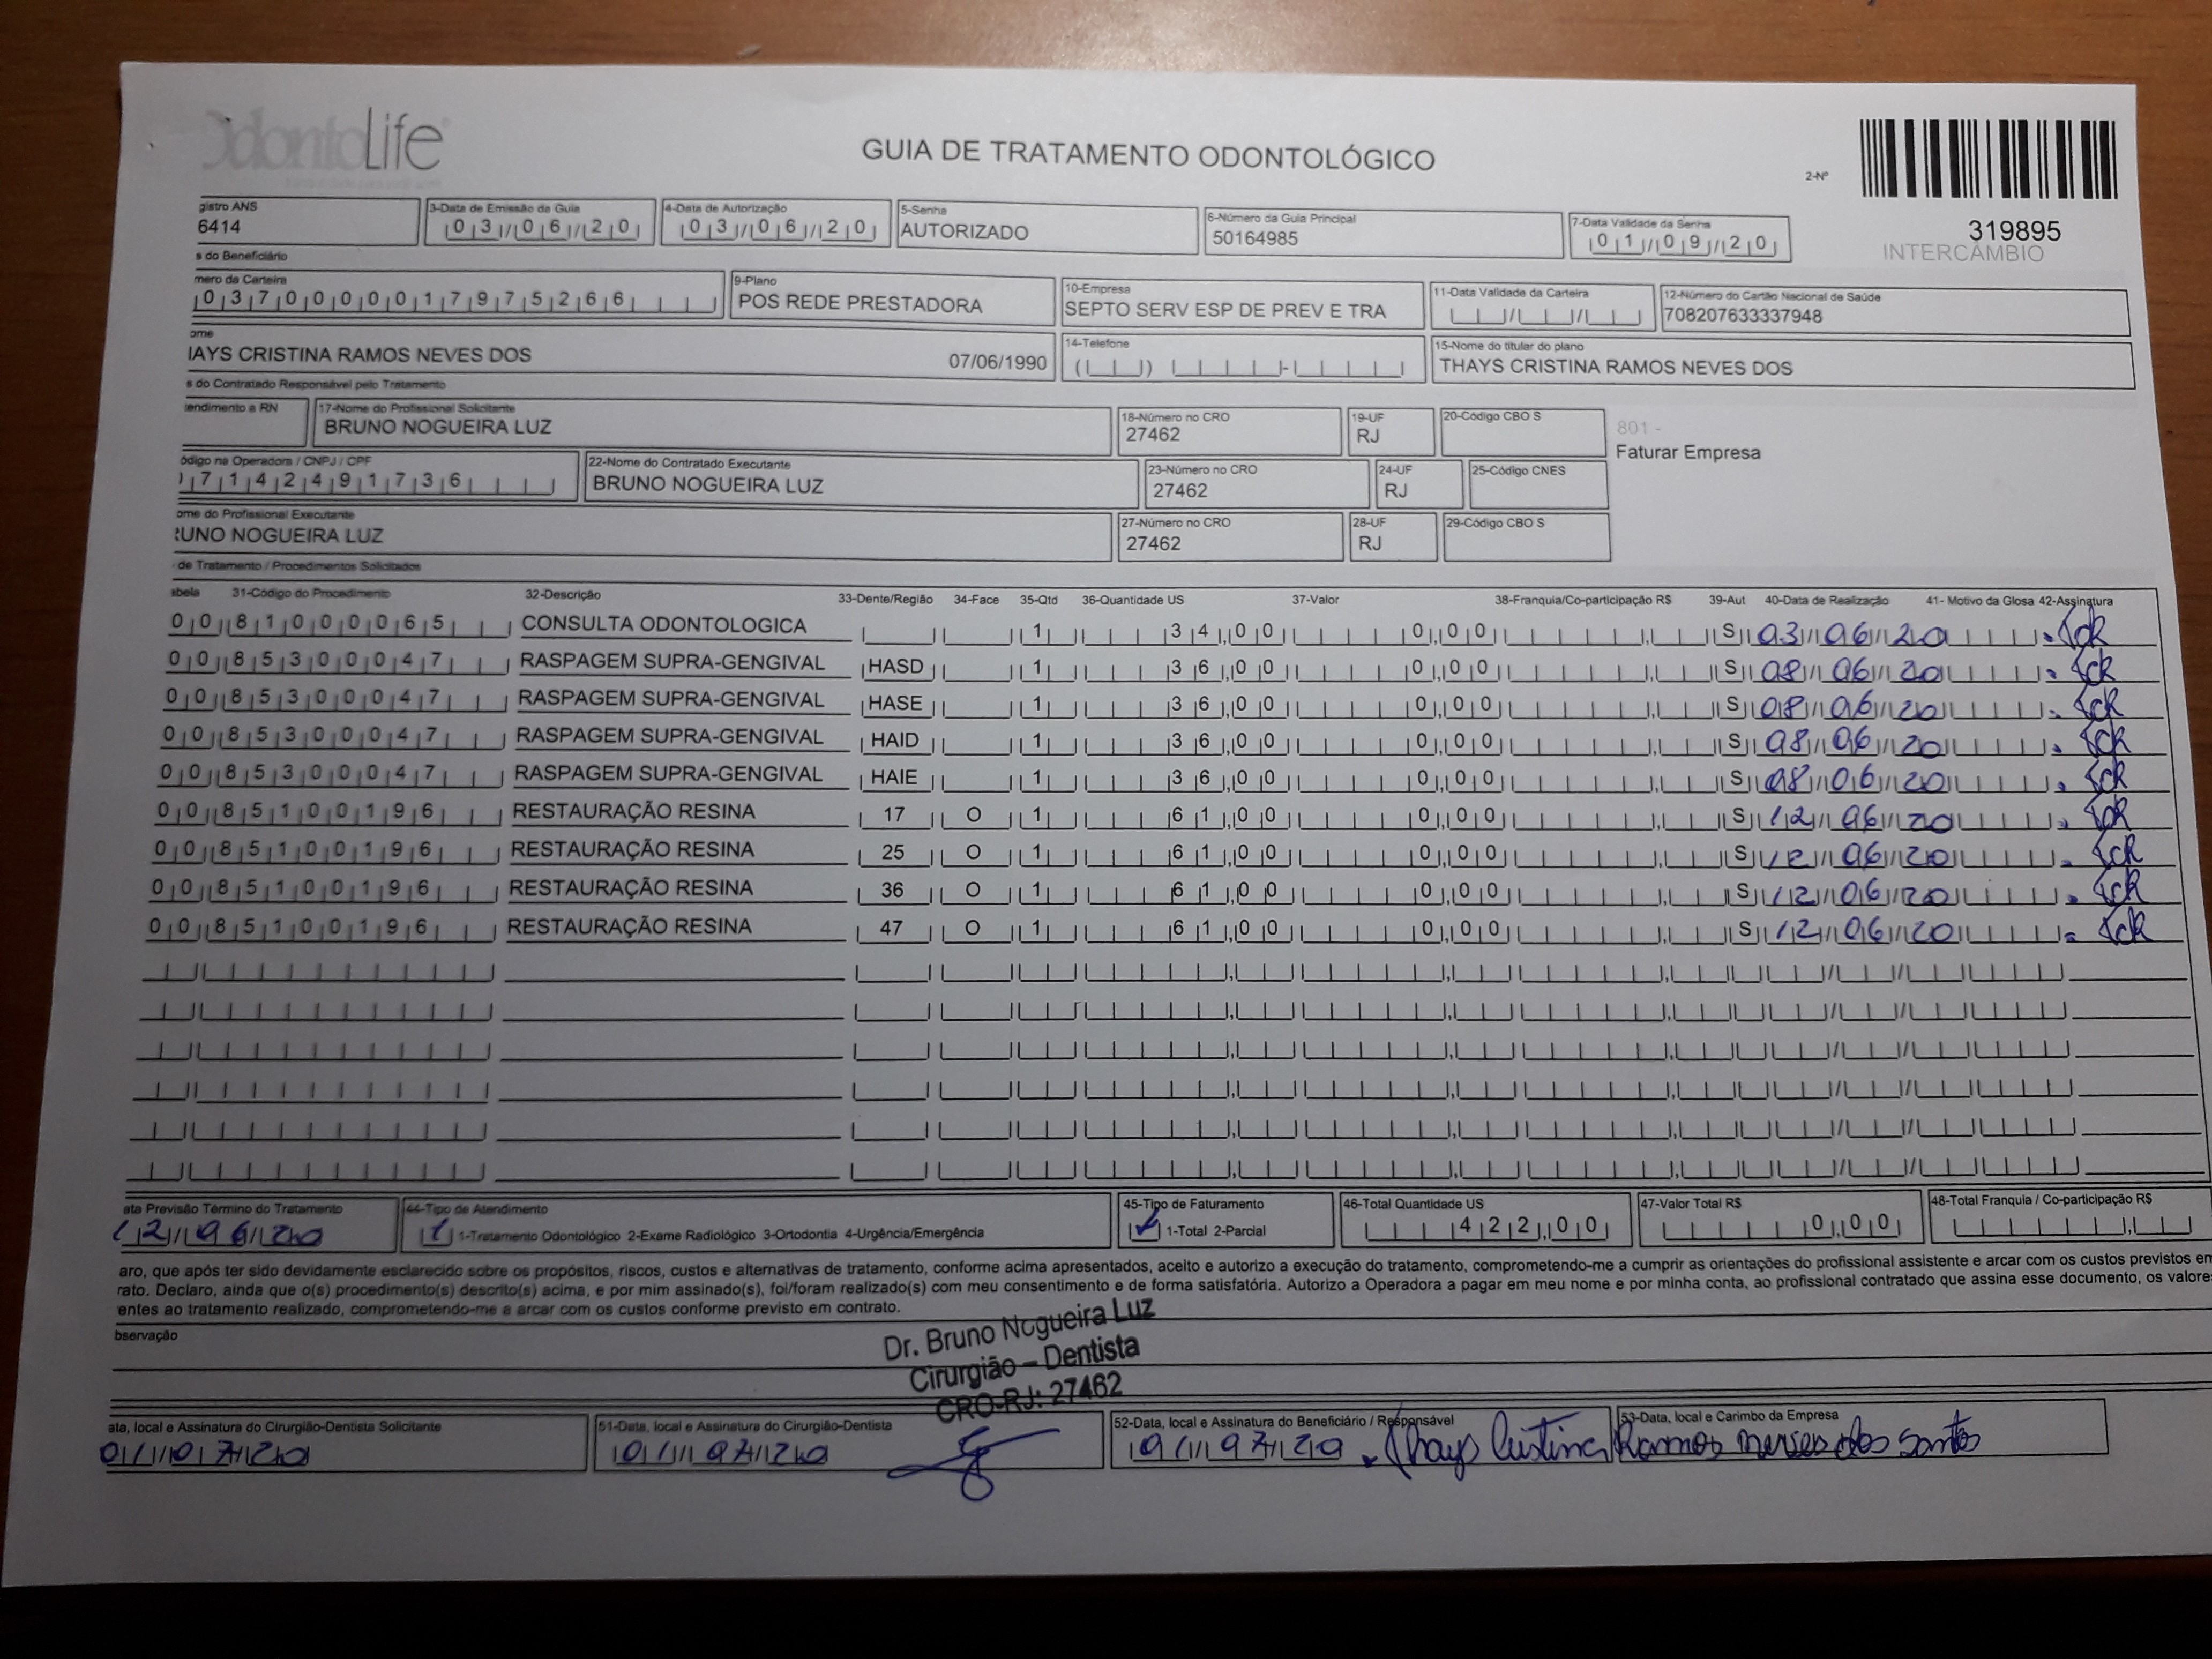 OdontoLife
GUIA DE TRATAMENTO ODONTOLÓGICO
2-Nº
319895
INTERCÂMBIO
gistro ANS 3-Data de Emissão da Guia 4-Data de Autorização 5-Senha 6-Número da Guia Principal 7-Data Validade da Senha
6414 03/06/20 03/06/20 AUTORIZADO 50164985 01/09/20
s do Beneficiário
mero da Carteira 9-Plano 10-Empresa 11-Data Validade da Carteira 12-Número do Cartão Nacional de Saúde
03700000179752 66 POS REDE PRESTADORA SEPTO SERV ESP DE PREV E TRA 708207633337948
ome 14-Telefone 15-Nome do titular do plano
IAYS CRISTINA RAMOS NEVES DOS 07/06/1990 THAYS CRISTINA RAMOS NEVES DOS
s do Contratado Responsável pelo Tratamento
endimento a RN 17-Nome do Profissional Solicitante 18-Número no CRO 19-UF 20-Código CBO S
BRUNO NOGUEIRA LUZ 27462 RJ
801 -
Faturar Empresa
ódigo na Operadora / CNPJ / CPF 22-Nome do Contratado Executante 23-Número no CRO 24-UF 25-Código CNES
7142491736 BRUNO NOGUEIRA LUZ 27462 RJ
ome do Profissional Executante 27-Número no CRO 28-UF 29-Código CBO S
UNO NOGUEIRA LUZ 27462 RJ
de Tratamento / Procedimentos Solicitados
abela 31-Código do Procedimento 32-Descrição 33-Dente/Região 34-Face 35-Qtd 36-Quantidade US 37-Valor 38-Franquia/Co-participação R$ 39-Aut 40-Data de Realização 41- Motivo da Glosa 42-Assinatura
00 81000065 CONSULTA ODONTOLOGICA 1 34,00 0,00 S 03/06/20 tcR
00 85300047 RASPAGEM SUPRA-GENGIVAL HASD 1 36,00 0,00 S 08/06/20 tcR
00 85300047 RASPAGEM SUPRA-GENGIVAL HASE 1 36,00 0,00 S 08/06/20 tcR
00 85300047 RASPAGEM SUPRA-GENGIVAL HAID 1 36,00 0,00 S 08/06/20 tcR
00 85300047 RASPAGEM SUPRA-GENGIVAL HAIE 1 36,00 0,00 S 08/06/20 tcR
00 85100196 RESTAURAÇÃO RESINA 17 O 1 61,00 0,00 S 12/06/20 tcR
00 85100196 RESTAURAÇÃO RESINA 25 O 1 61,00 0,00 S 12/06/20 tcR
00 85100196 RESTAURAÇÃO RESINA 36 O 1 61,00 0,00 S 12/06/20 tcR
00 85100196 RESTAURAÇÃO RESINA 47 O 1 61,00 0,00 S 12/06/20 tcR
ata Previsão Término do Tratamento 44-Tipo de Atendimento 45-Tipo de Faturamento 46-Total Quantidade US 47-Valor Total R$ 48-Total Franquia / Co-participação R$
12/06/20 1 1-Tratamento Odontológico 2-Exame Radiológico 3-Ortodontia 4-Urgência/Emergência 1-Total 2-Parcial 422,00 0,00
aro, que após ter sido devidamente esclarecido sobre os propósitos, riscos, custos e alternativas de tratamento, conforme acima apresentados, aceito e autorizo a execução do tratamento, comprometendo-me a cumprir as orientações do profissional assistente e arcar com os custos previstos em
rato. Declaro, ainda que o(s) procedimento(s) descrito(s) acima, e por mim assinado(s), foi/foram realizado(s) com meu consentimento e de forma satisfatória. Autorizo a Operadora a pagar em meu nome e por minha conta, ao profissional contratado que assina esse documento, os valores
entes ao tratamento realizado, comprometendo-me a arcar com os custos conforme previsto em contrato.
bservação
Dr. Bruno Nogueira Luz
Cirurgião – Dentista
CRO-RJ: 27462
ata, local e Assinatura do Cirurgião-Dentista Solicitante 51-Data, local e Assinatura do Cirurgião-Dentista 52-Data, local e Assinatura do Beneficiário / Responsável 53-Data, local e Carimbo da Empresa
01/07/20 01/07/20 01/07/20 Thays Cristina Ramos neves dos santos